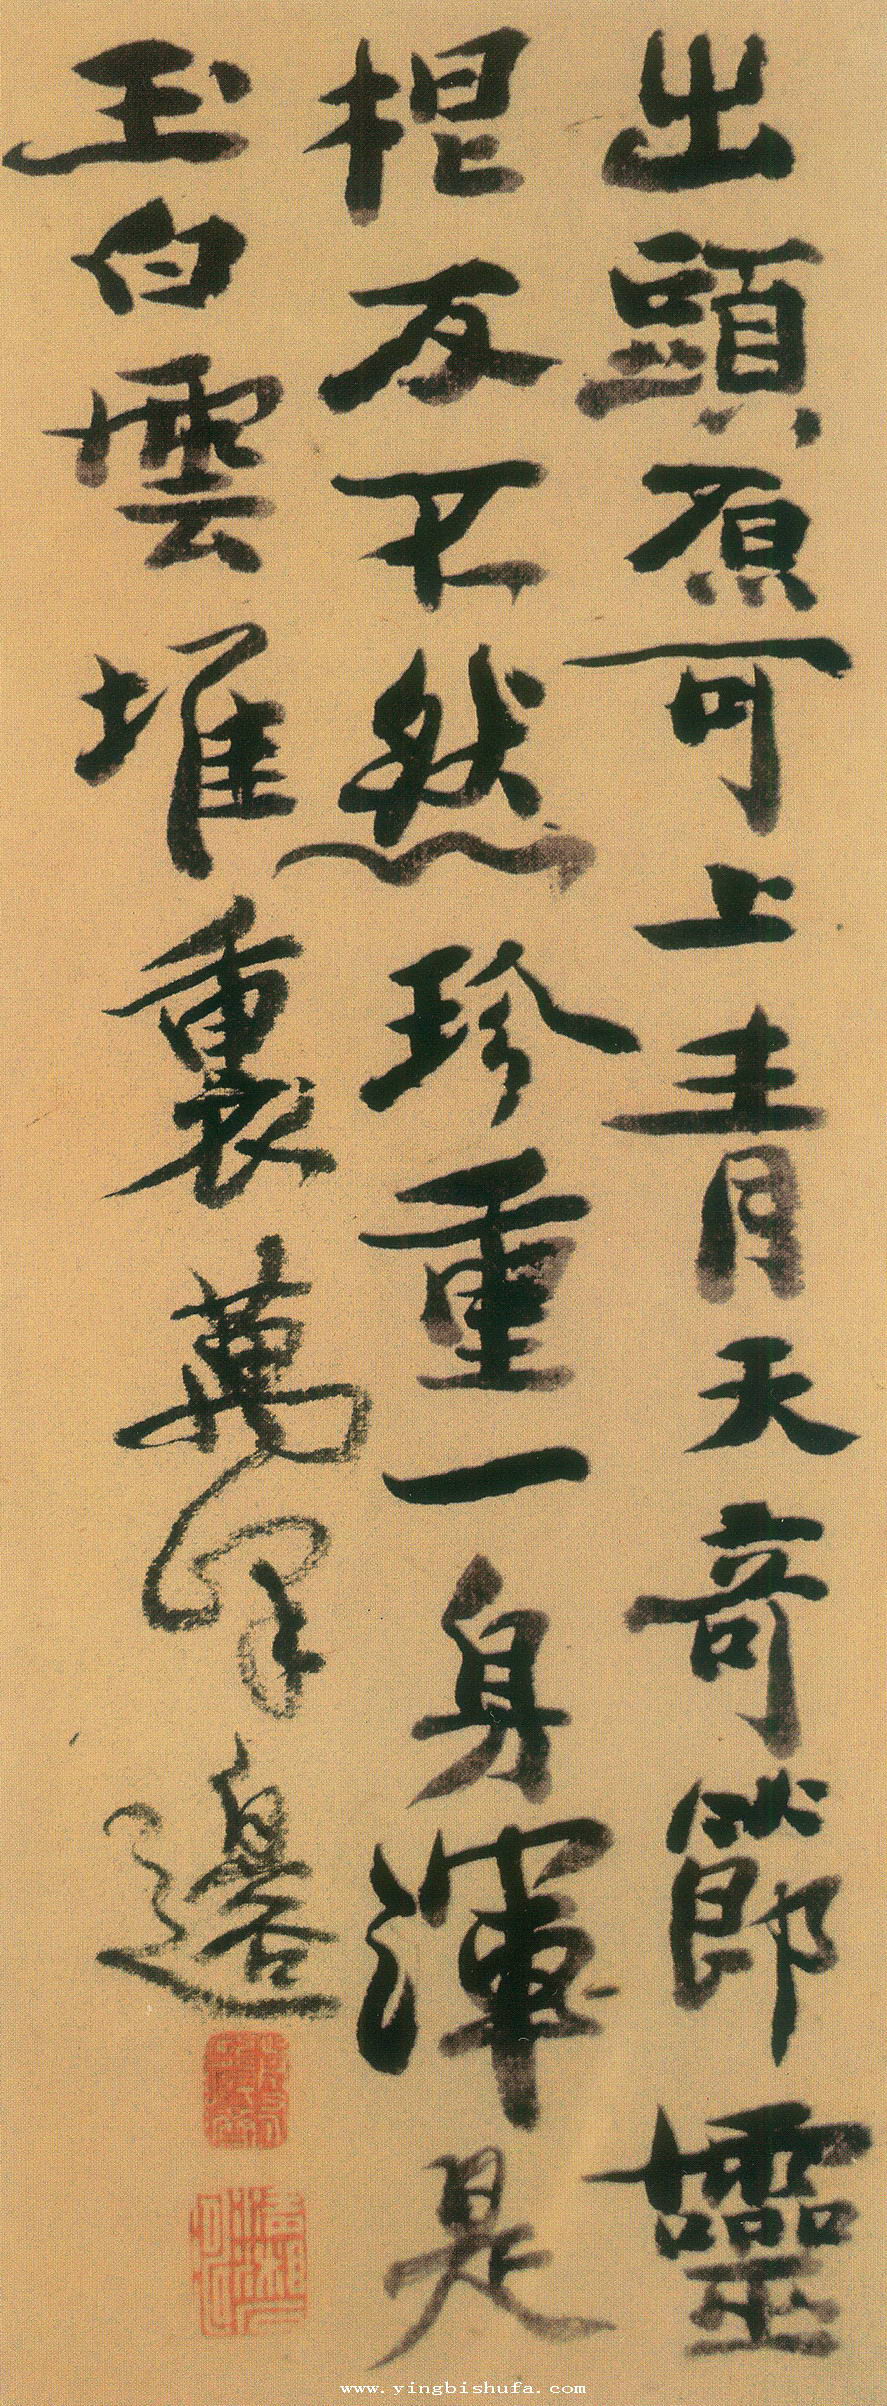 出頭原可上青天奇節靈
根反不然珍重一身渾是
玉白雲堆裏萬邊
www.yingbishufa.com